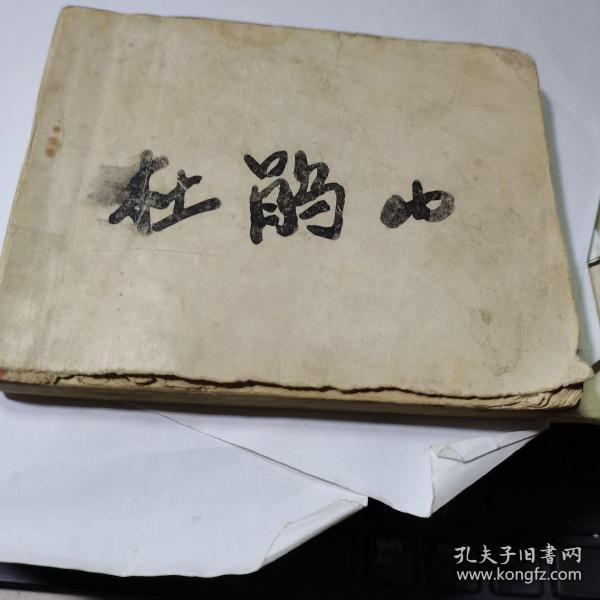 杜鹃山
孔夫子旧書网
www.kongfz.com